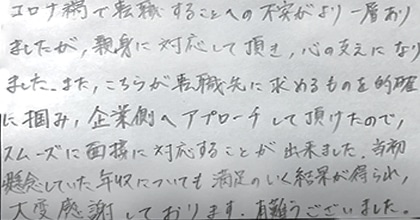 コロナ禍で転職することへの不安がより一層あり
ましたが，親身に対応して頂き，心の支えになり
ました．また，こちらが転職先に求めるものを的確
に掴み，企業側へアプローチして頂けたので，
スムーズに面接に対応することが出来ました．当初
懸念していた年収についても満足のいく結果が得られ，
大変感謝しております．有難うございました．